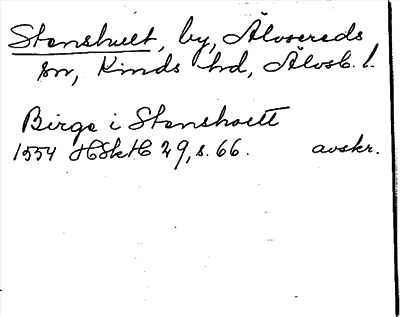 Stenshult, by, Älvsereds
sn, Kinds hd, Älvsb. l.
Birge i Stenshoett
1554 HSkH 29, s. 66. avskr.